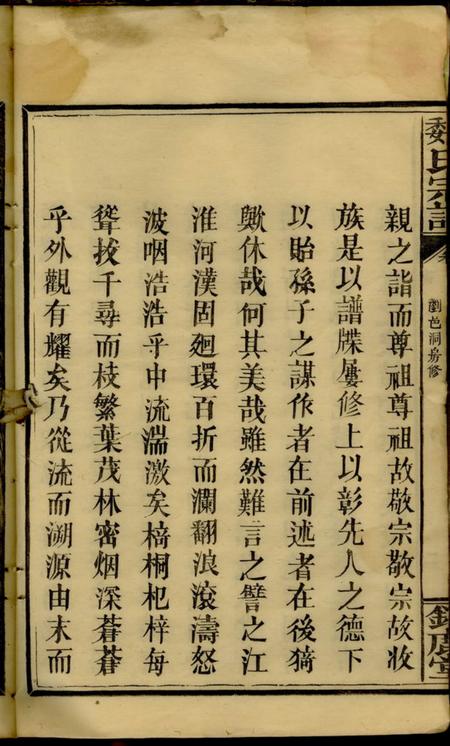 魏氏宗譜
劉邑洞房修
親之詣而尊祖尊祖故敬宗敬宗故收
族是以譜牒屢修上以彰先人之德下
以貽孫子之謀作者在前述者在後猗
歟休哉何其美哉雖然難言之譬之江
淮河漢固廻環百折而瀾翻浪滾濤怒
波咽浩浩乎中流湍激矣梧桐杞梓每
聳拔千尋而枝繁葉茂林密烟深蒼蒼
乎外觀有耀矣乃從流而溯源由末而